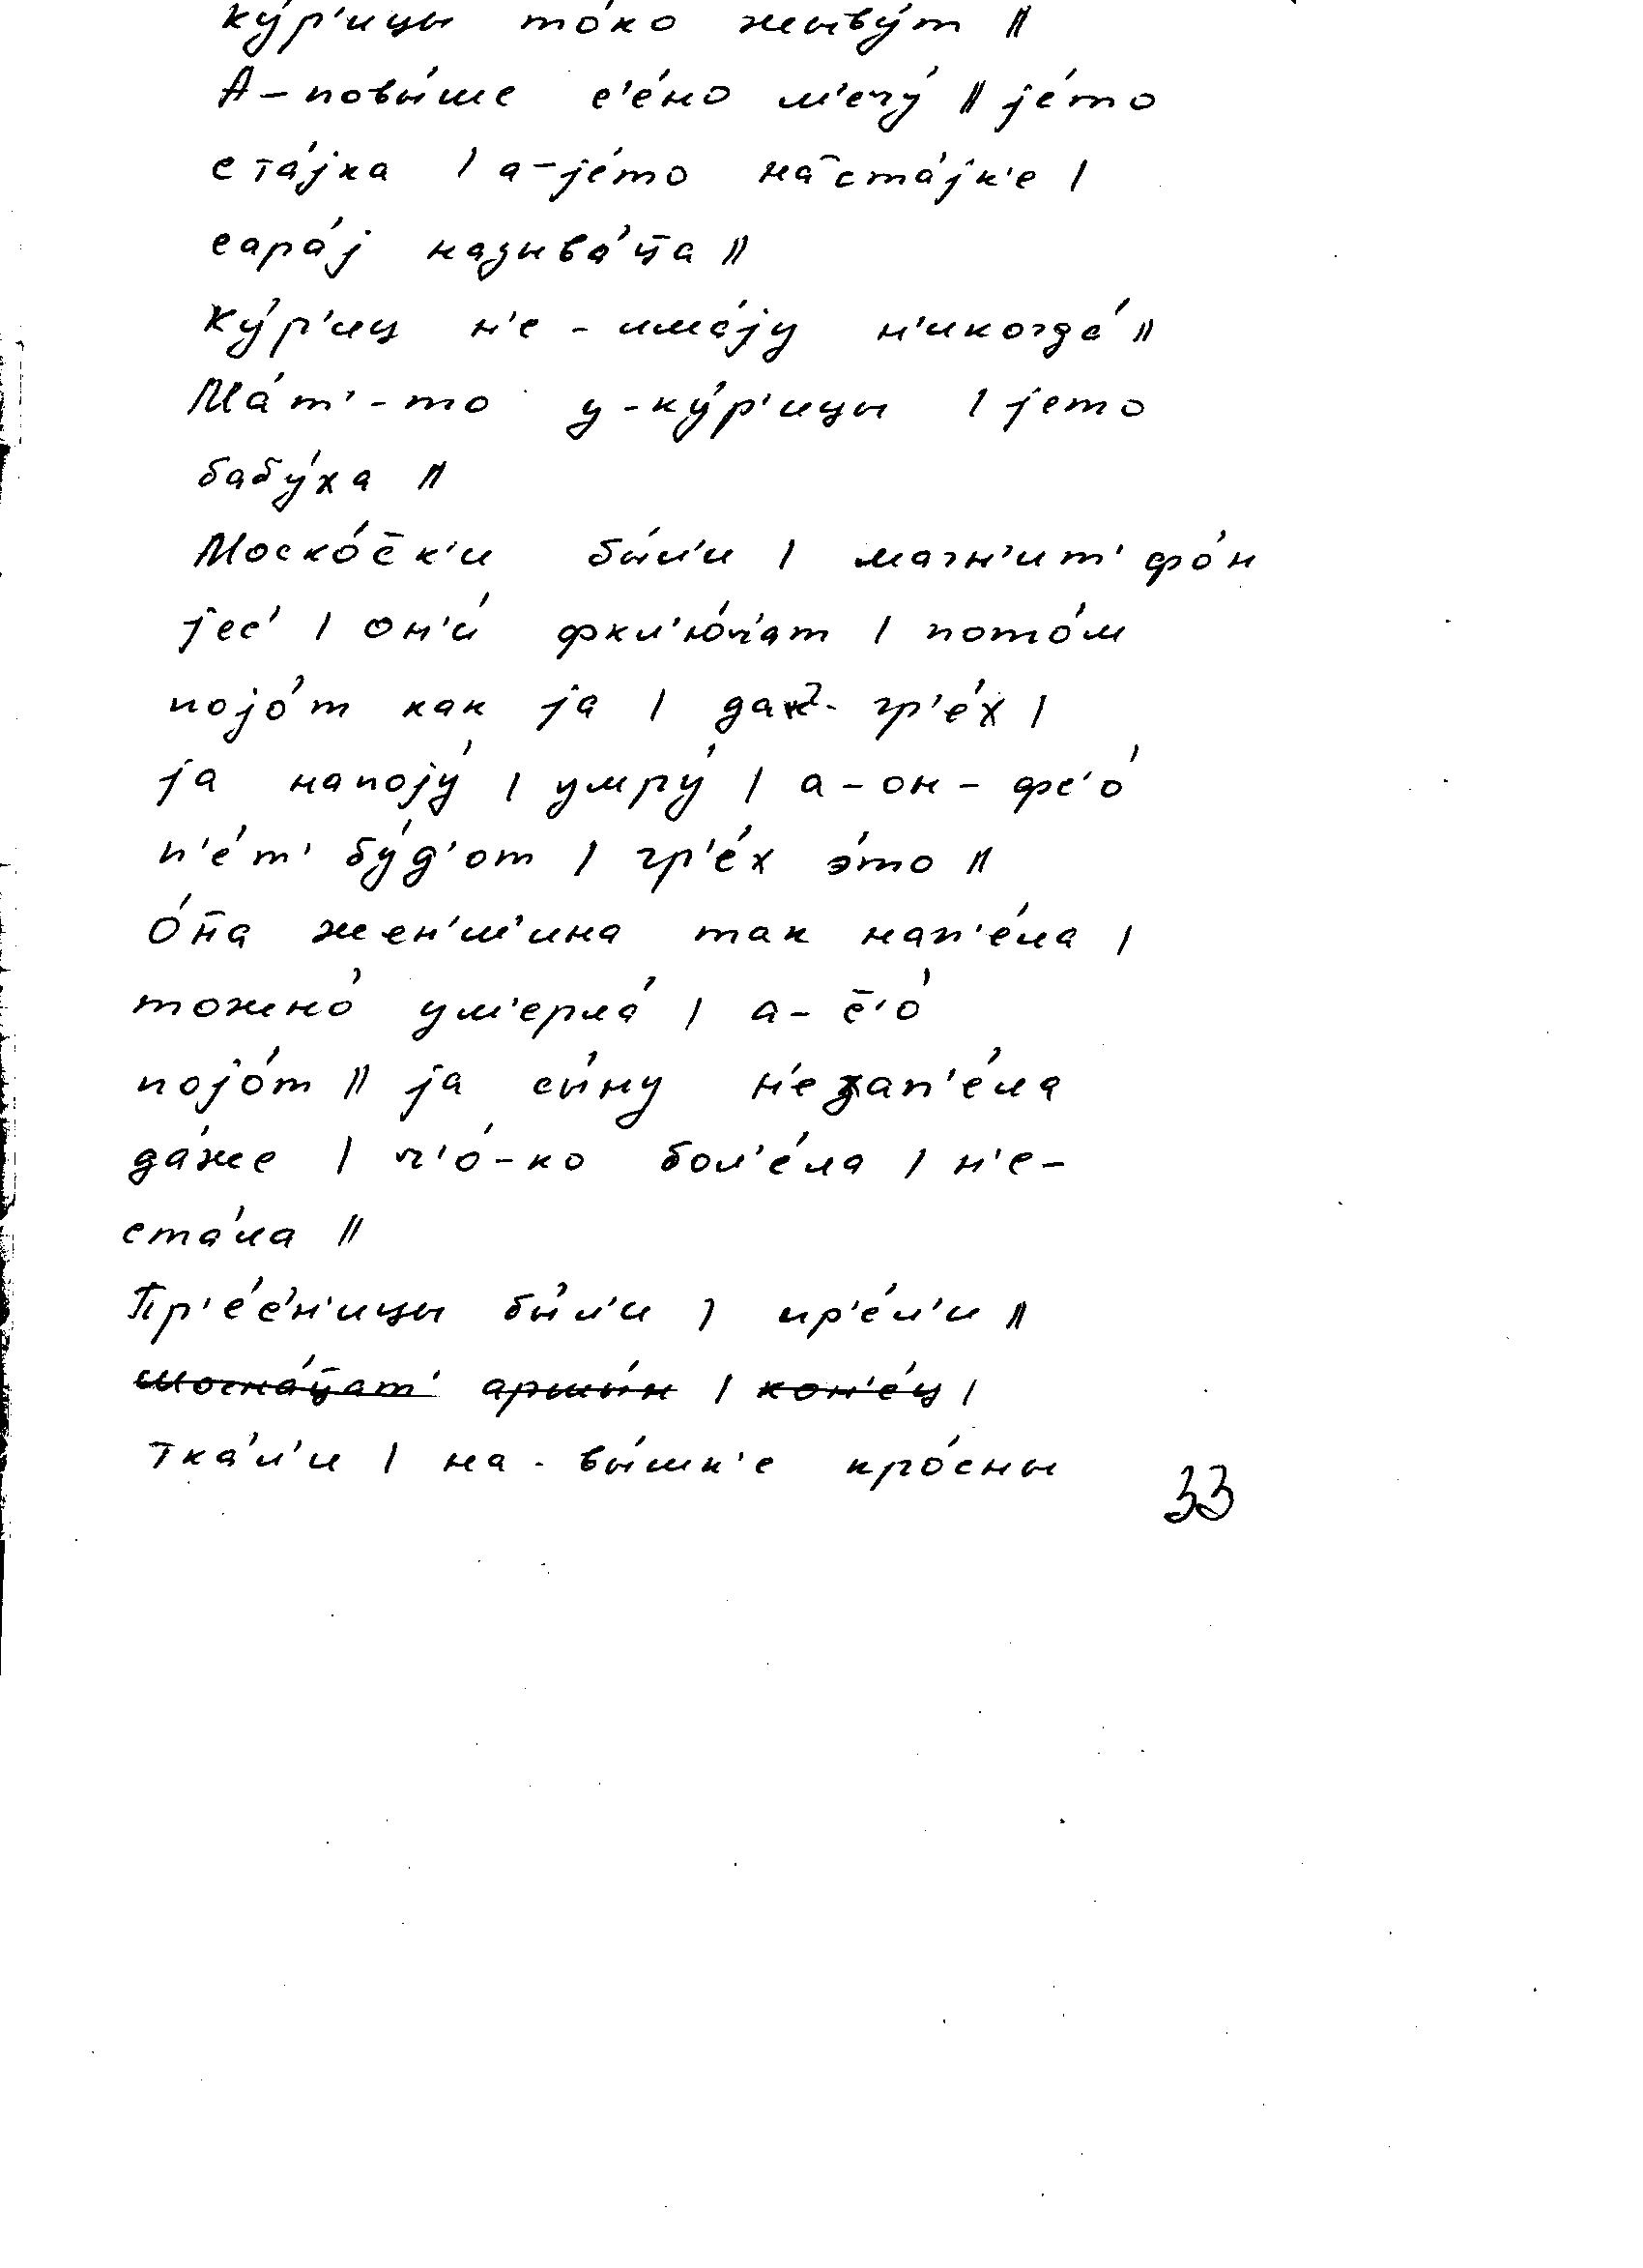 ку́р'ицы то́ко жыву́т ||
А-повы́ше с'е́но м'ечу́ || jе́то
ста́jка | а-jе́то на̄ста́jк'е |
сара́j называ́ц̄а ||
Ку́р'иц н'е-име́jу н'икогда́ ||
Ма́т'-то у-ку́р'ицы | jето
бабу́ха ||
Моско́с̄к'и бы́л'и | магн'ит'фо́н
jес' | он'и́ фкл'ю́ч'ат | пото́м
поjо́т как jа | дак-гр'е́х |
jа напоjу́ | умру́ | а-он-фс'о́
п'е́т' бу́д'от | гр'е́х э́то ||
О́н̄а жен'ш'ина так нап'е́ла |
тожно́ ум'ерла́ | а-с̄'о́
поjо́т || jа сы́ну н'езап'е́ла
да́же | ч'о́-ко бол'е́ла | н'е-
ста́ла ||
Пр'е́с'н'ицы бы́л'и | пр'е́л'и ||
шосна́ц̄ат' аршы́н | кон'е́ц |
Тка́л'и | на-вы́шк'е кро́сны
33